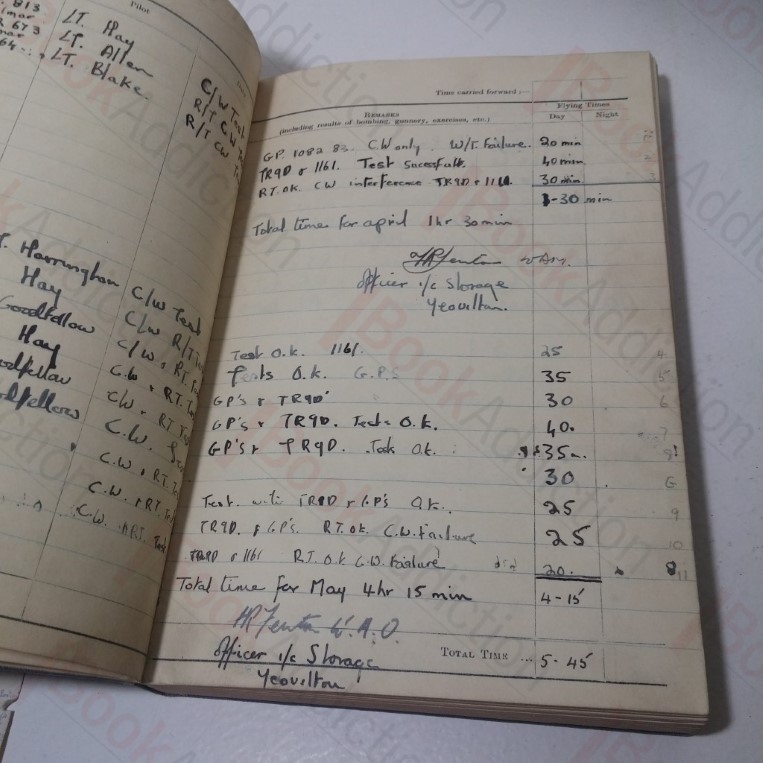 813
Pilot
Lt. Hay
673
Lt. Allen
64
Lt. Blake.
C/W Test
R/T CW
R/T CW
Harrington C/W Test
Hay C/W R/T
Goodfellow C/W & RT.
Hay C.W & RT.
C/W & RT.
C.W.
C.W & RT.
C.W. & RT.
C.W. & RT.
Time carried forward :—
Remarks
(including results of bombing, gunnery, exercises, etc.)
Flying Times
Day Night
GP. 1082 83. C.W only. W/T. Failure. 20 min
TR9D & 1161. Test Sucessfull. 40 min
RT. OK. CW interference TR9D & 1161. 30 min
1-30 min
Total time for april 1hr 30 min
HR Fenton
Officer i/c Storage
Yeovilton.
Test O.k. 1161. 25 4
Tests O.k. G.P.S 35 5
GP's & TR9D 30 6
GP's & TR9D. Tests O.k. 40. 7
GP's & TR9D. O.k. 35 8
30
Test with TR9D & GP's O.k. 25 9
TR9D. & GP's. RT. OK. C.W. Failure 25 10
TR9D & 1161 R.T. O.K C.W. Failure 20. 11
Total time for May 4hr 15 min 4-15
HR Fenton W.A.O.
Officer i/c Storage
Yeovilton
Total Time ... 5-45
BookAddiction